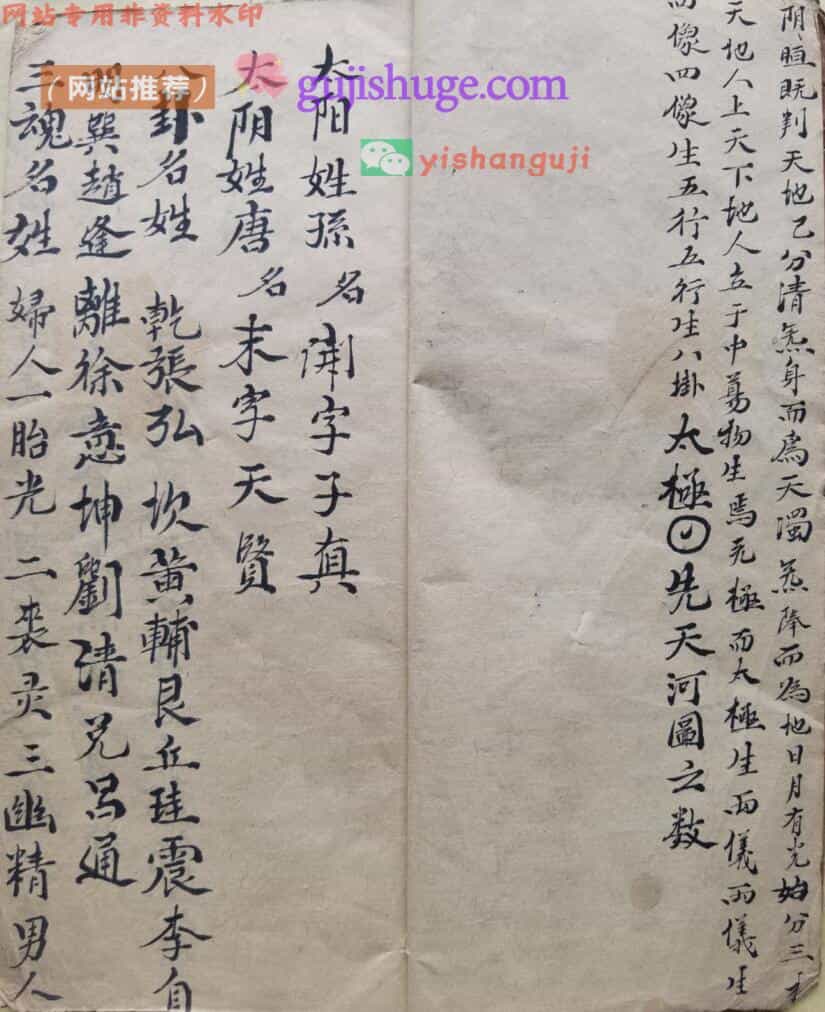 网站专用非资料水印
(网站推荐)
gujishuge.com
yishanguji
阴晅既判天地已分清炁身而爲天濁炁降而為地日月有光始分三才
天地人上天下地人立于中萬物生焉无極而太極生兩儀兩儀生
四像四像生五行五行生八掛太極先天河圖之数
太阳姓孫名開字子真
太阴姓唐名末字天賢
八卦名姓 乾張弘坎黄輔艮丘珪震李自
巽趙逢離徐意坤劉清兌昌通
三魂名姓 婦人一胎光二裘灵三幽精男人